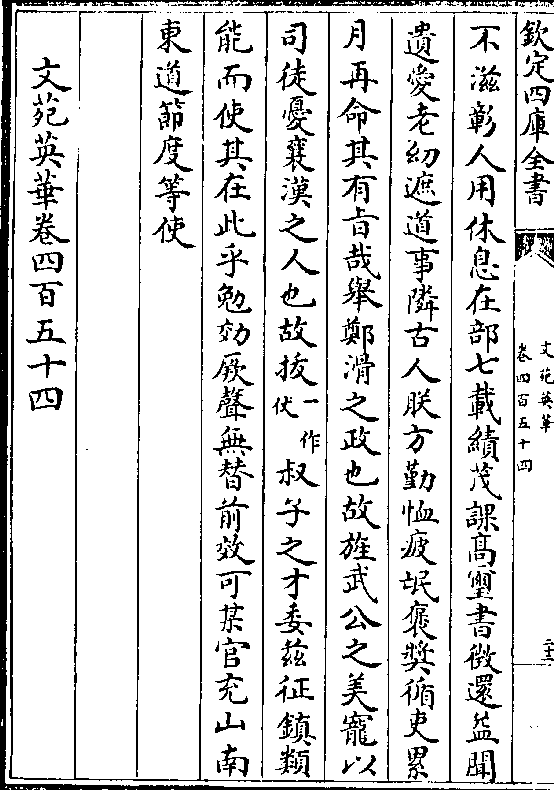 欽定四庫全書
文苑英華
卷四百五十四
二十三
不滋彰人用休息在部七載績茂課高璽書徴還益聞
遺愛老幼遮道事隣古人朕方勤恤疲氓褒奨循吏累
月再命其有㫖哉舉鄭滑之政也故旌武公之美寵以
司徒憂襄漢之人也故拔一作伏叔子之才委兹征鎮類
能而使其在此乎勉効厥聲無替前效可某官充山南
東道節度等使
文苑英華卷四百五十四